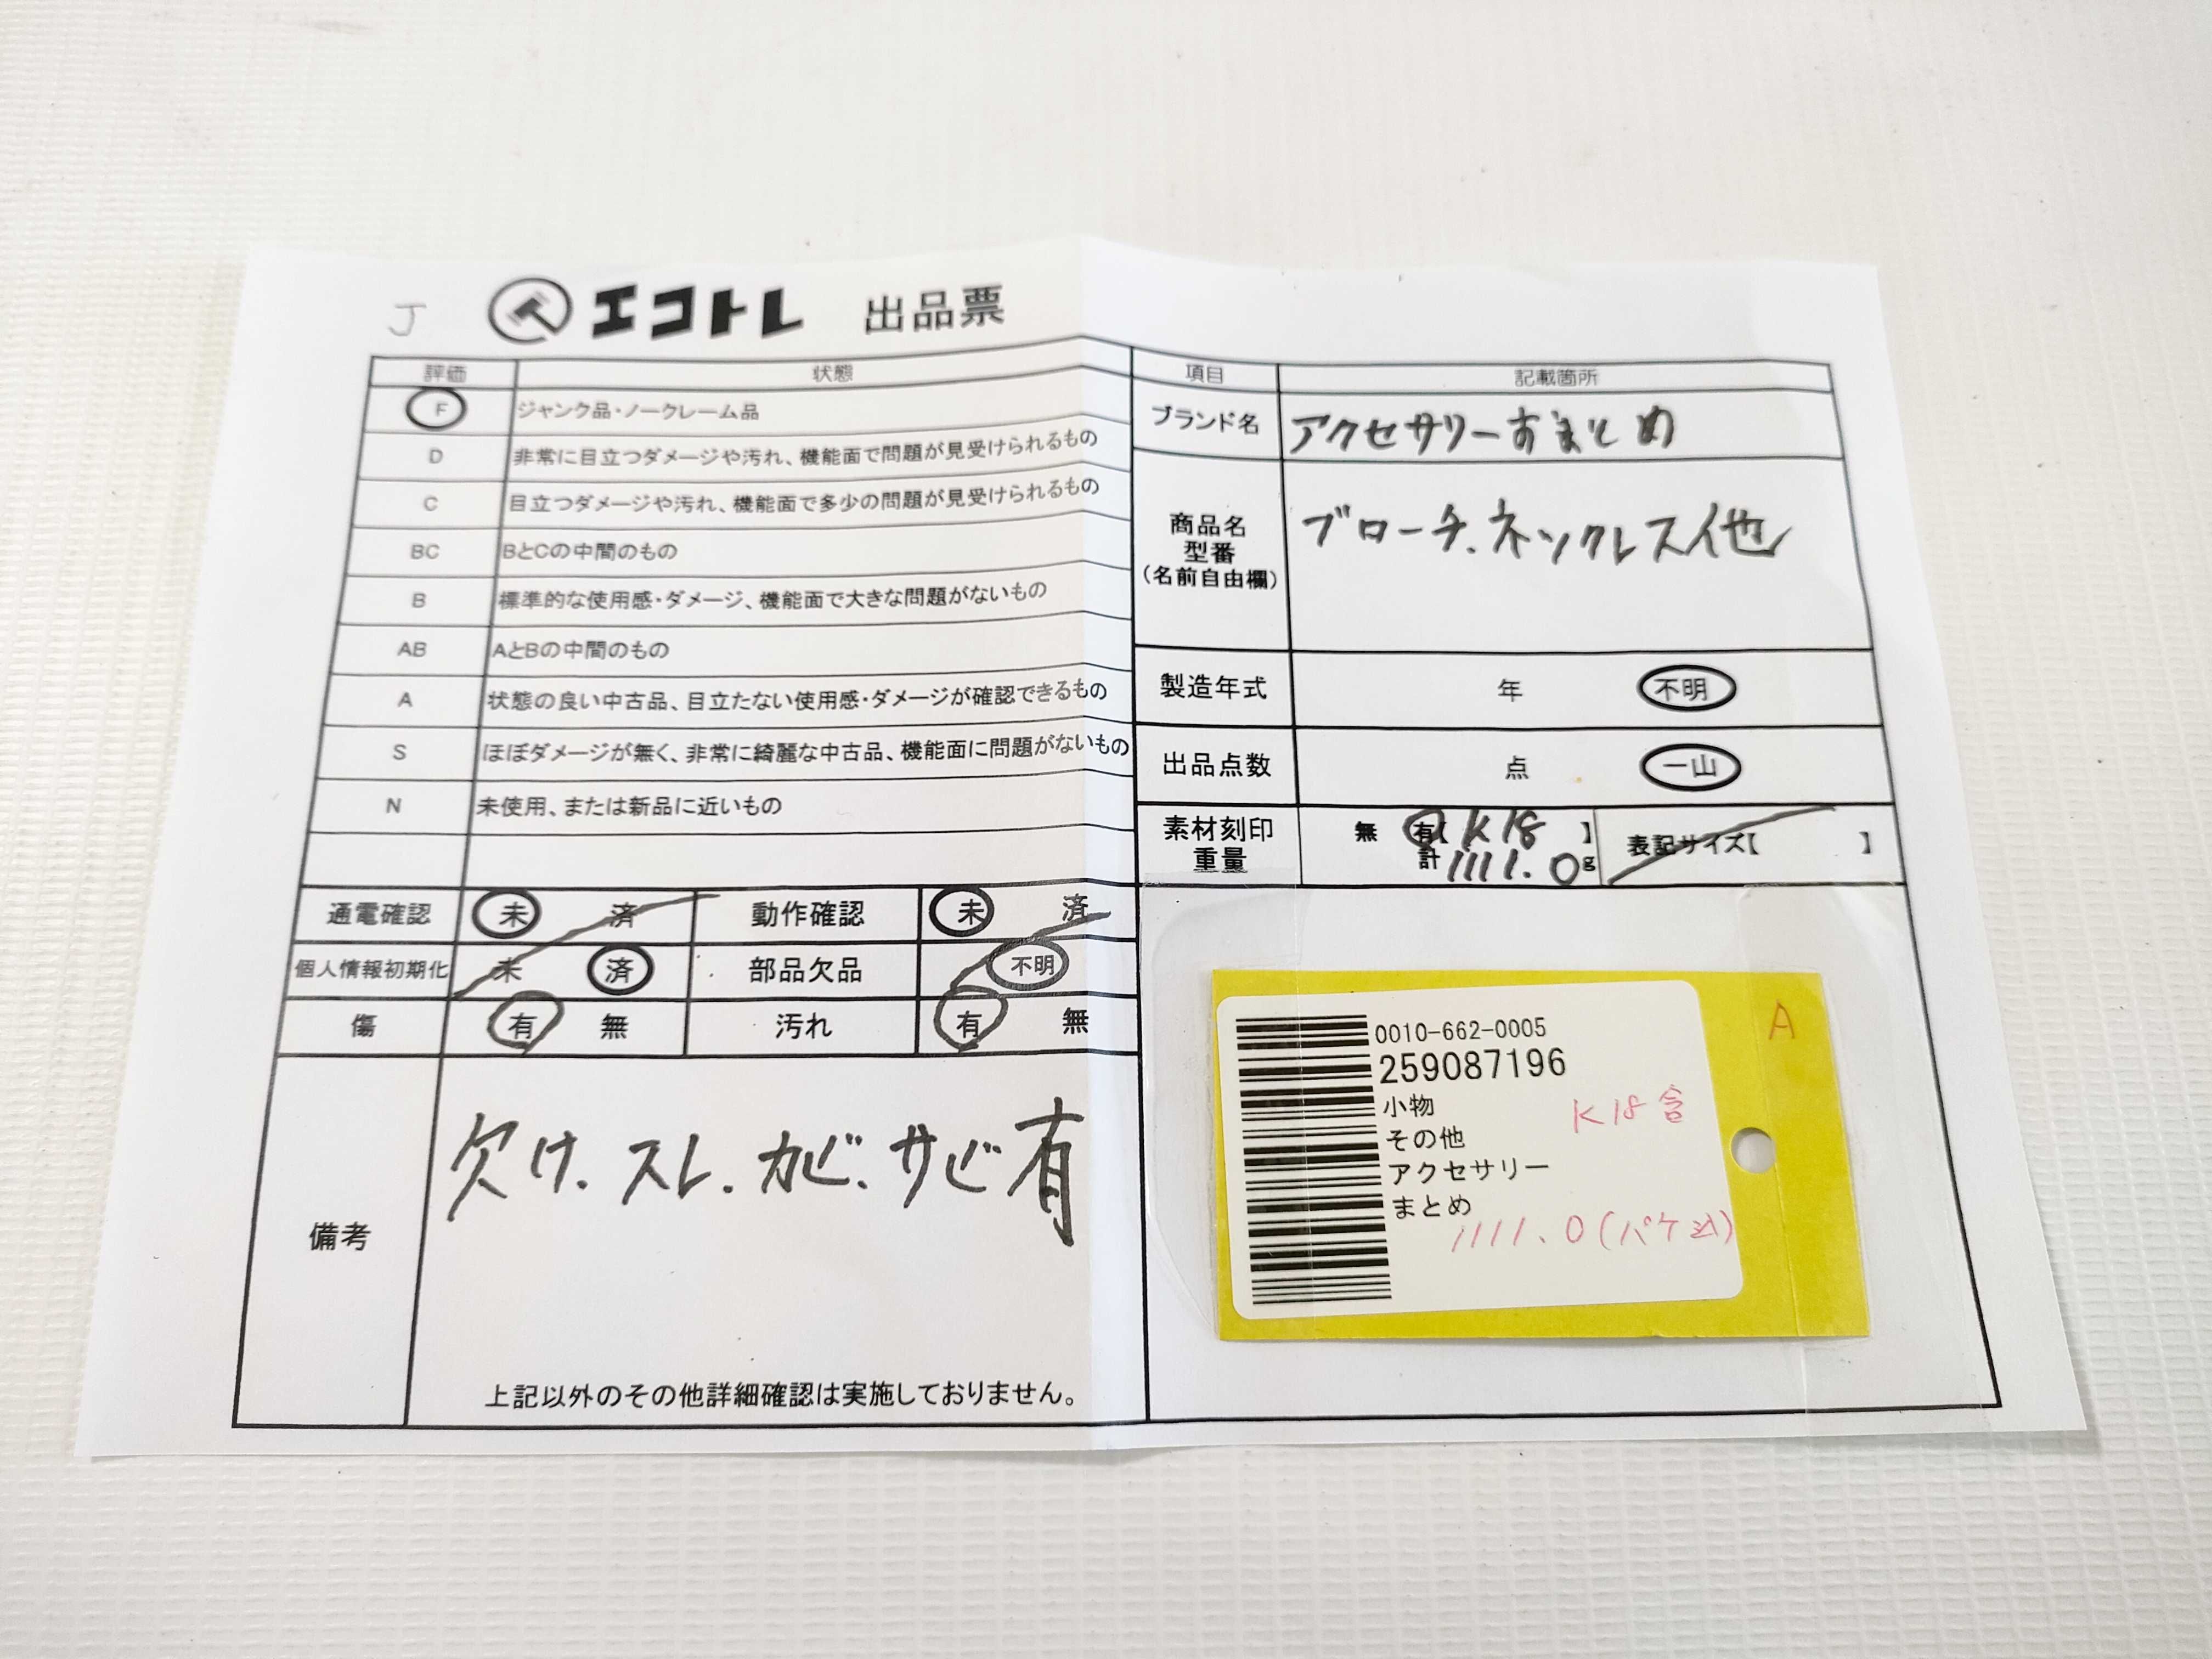 J エコトレ 出品票
評価 状態
F ジャンク品・ノークレーム品
D 非常に目立つダメージや汚れ、機能面で問題が見受けられるもの
C 目立つダメージや汚れ、機能面で多少の問題が見受けられるもの
BC BとCの中間のもの
B 標準的な使用感・ダメージ、機能面で大きな問題がないもの
AB AとBの中間のもの
A 状態の良い中古品、目立たない使用感・ダメージが確認できるもの
S ほぼダメージが無く、非常に綺麗な中古品、機能面に問題がないもの
N 未使用、または新品に近いもの
通電確認 未 済 動作確認 未 済
個人情報初期化 未 済 部品欠品 不明
傷 有 無 汚れ 有 無
備考
欠け、スレ、カビ、サビ有
上記以外のその他詳細確認は実施しておりません。
項目 記載箇所
ブランド名 アクセサリーおまとめ
商品名
型番
(名前自由欄)
ブローチ、ネックレス他
製造年式 年 不明
出品点数 点 一山
素材刻印
重量
無 有【K18】
計1111.0g
表記サイズ【 】
A
0010-662-0005
259087196
小物
その他
アクセサリー
まとめ
K18含
1111.0